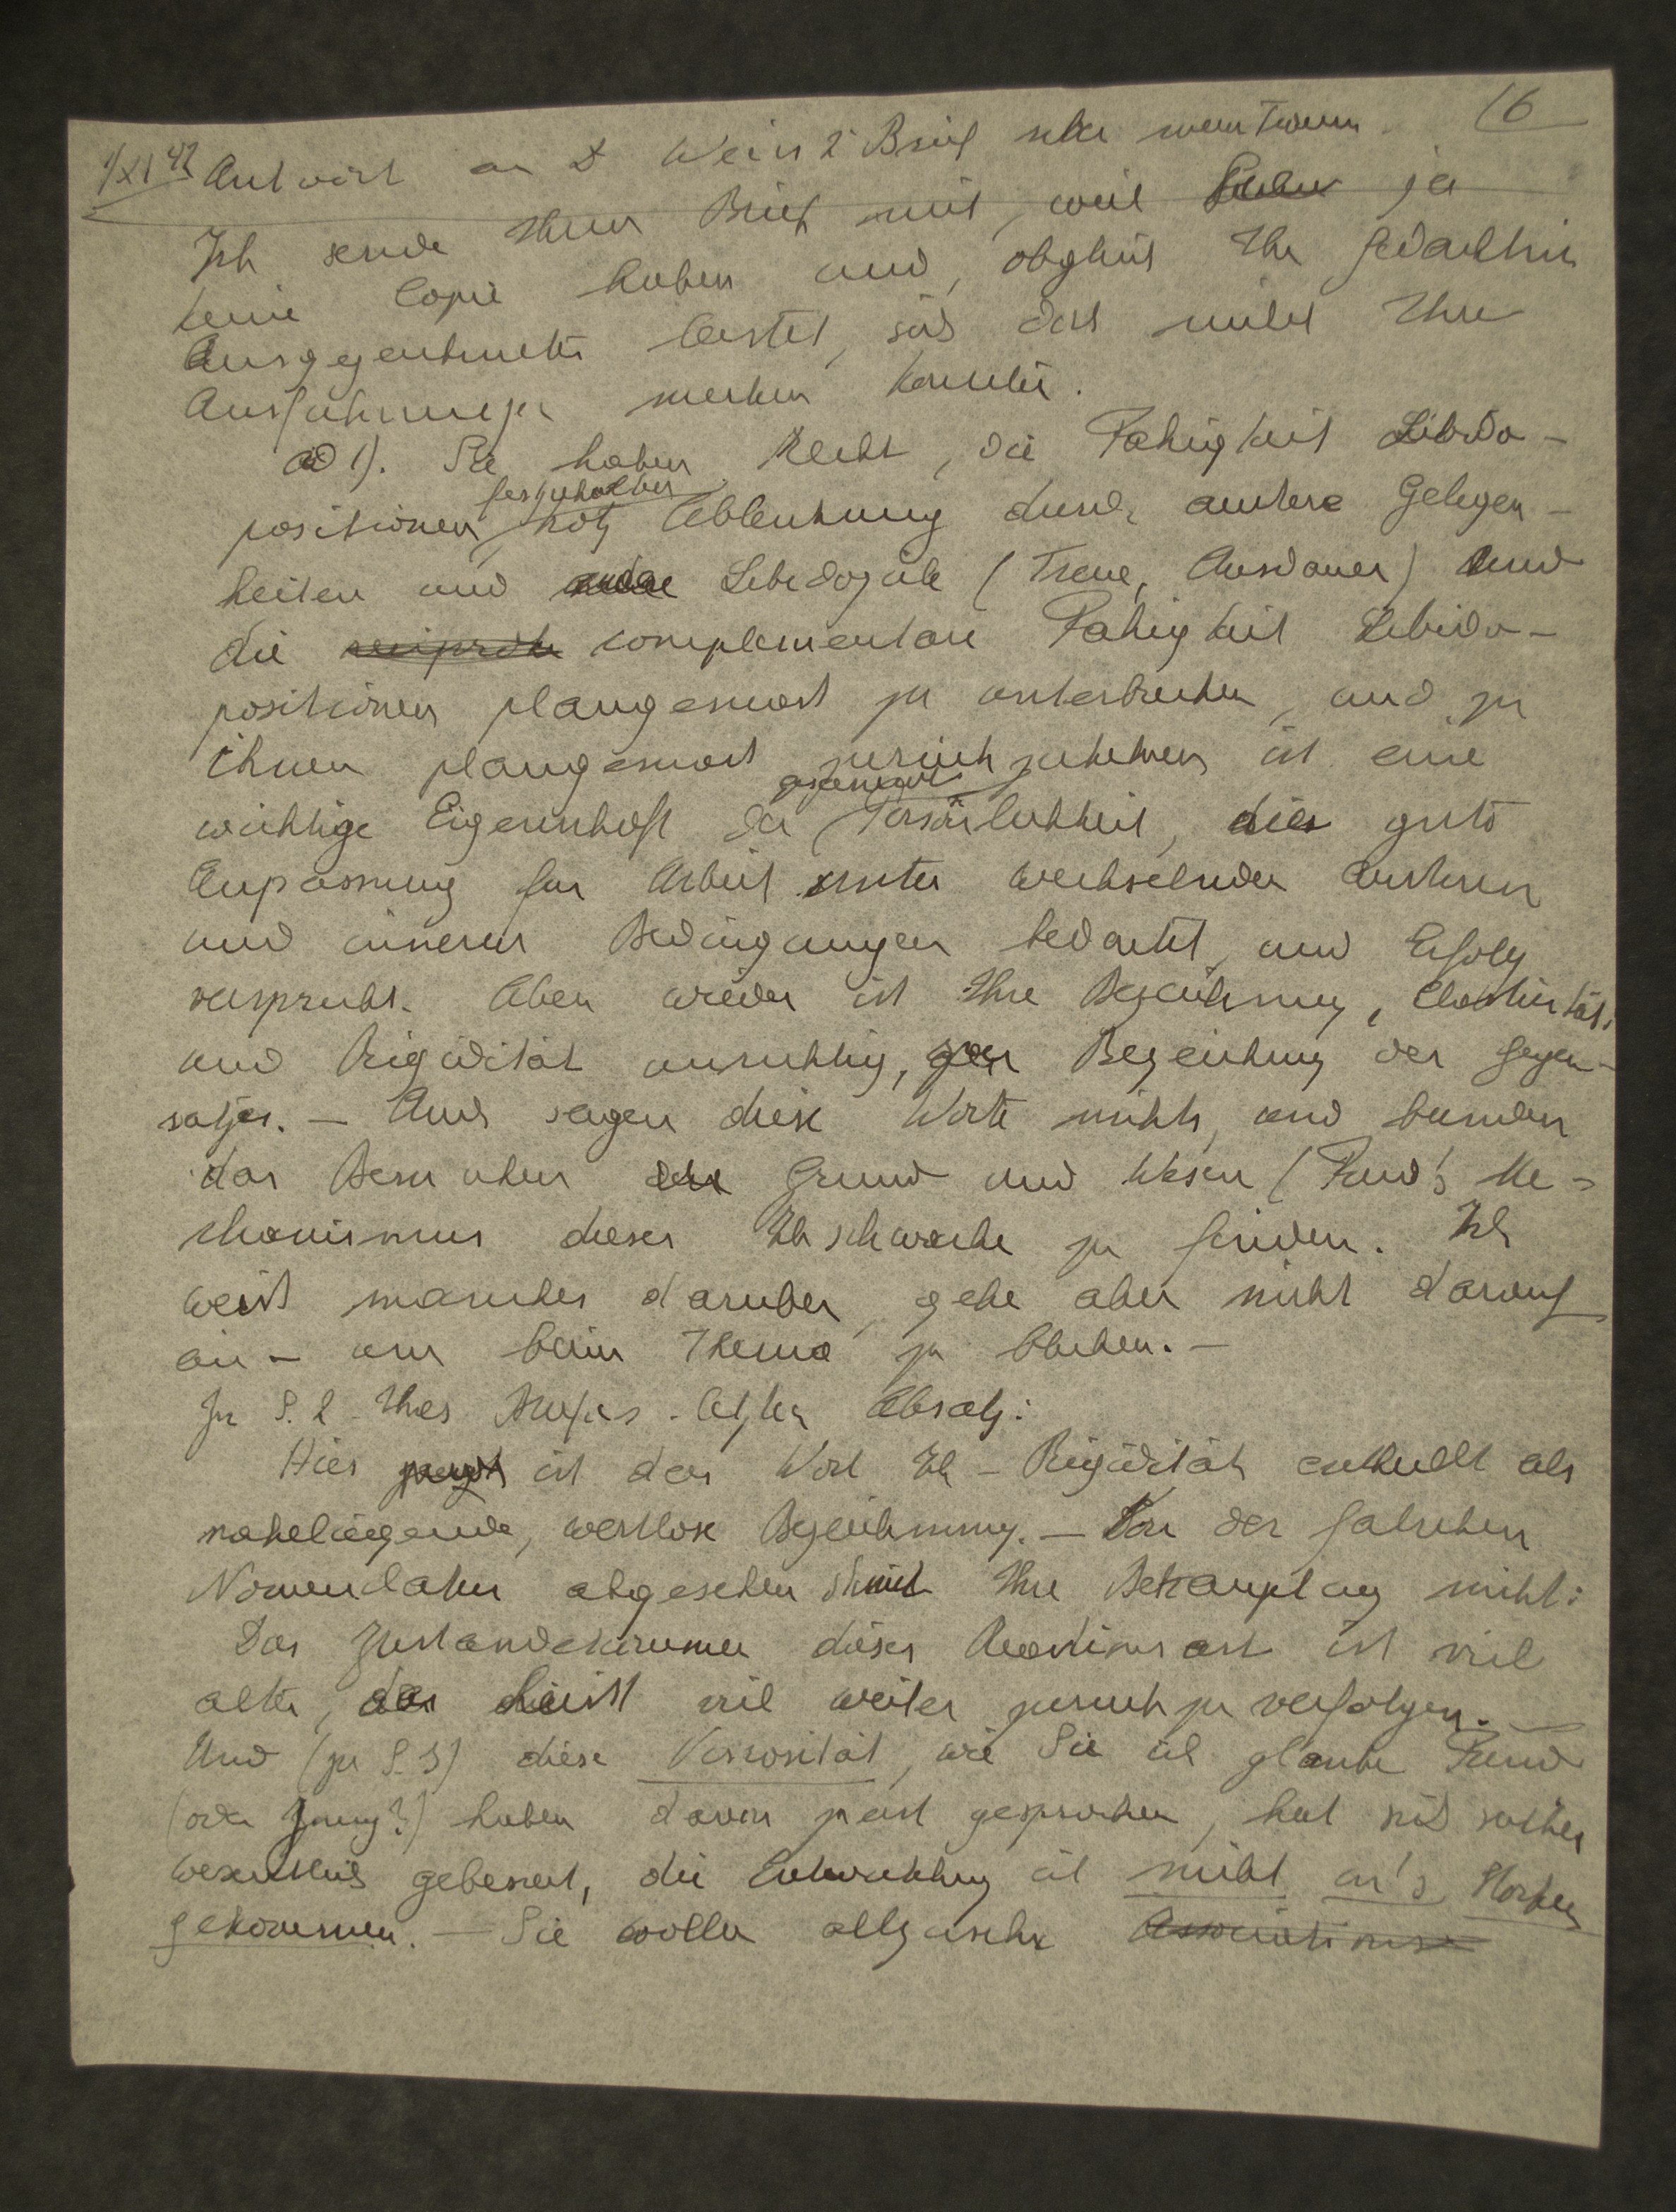 16
1/XI 42 Antwort an Dr Weiss 2 Brief
Ich sende Ihnen Brief mit, weil ja
keine Copie haben und, obgleich Ihr Gedächtnis
Ausgezeichnetes leistet, sich doch nicht Ihre
Ausführungen merken konnten.
ad 1). Sie haben Recht, die Fähigkeit Libido-
festzuhalten
positionen trotz Ablenkung durch andere Gelegen-
heiten und andere Libidoziele (Treue, Ausdauer) und
die complementäre Fähigkeit Libido-
positionen plangemäss zu unterbrechen, und zu
ihnen plangemäss zurückzukehren ist eine
wichtige Eigenschaft der Persönlichkeit, die gute
Anpassung für Arbeit unter wechselnden äusseren
und inneren Bedingungen bedeutet, und Erfolg
verspricht. Aber wieder ist Ihre Bezeichnung, Elasticität,
und Rigidität unrichtig, zur Bezeichnung des Gegen-
satzes. — Auch sagen diese Worte nichts, und
das Bemühen Grund und Wesen (Freud's Me-
chanismus dieser Ichschwäche zu finden. Ich
weiss manches darüber, gehe aber nicht darauf
ein — um beim Thema zu bleiben. —
Zu S. 2 Ihres Letzter Absatz:
Hier ist das Wort Ich-Rigidität enthüllt als
naheliegende, wertlose Bezeichnung. — Von der falschen
Nomenclatur abgesehen stimmt Ihre Behauptung nicht:
Das Zustandekommen dieser Reactionsart ist viel
älter, das heisst viel weiter zurück zu verfolgen. —
Und (zu S. 3) diese Viscosität, wie Sie ich glaube Freud
(oder Jung?) haben davon zuerst gesprochen, hat sich seither
wesentlich gebessert, die Entwicklung ist nicht an's Stocken
gekommen. — Sie wollen allzu rasche Associations